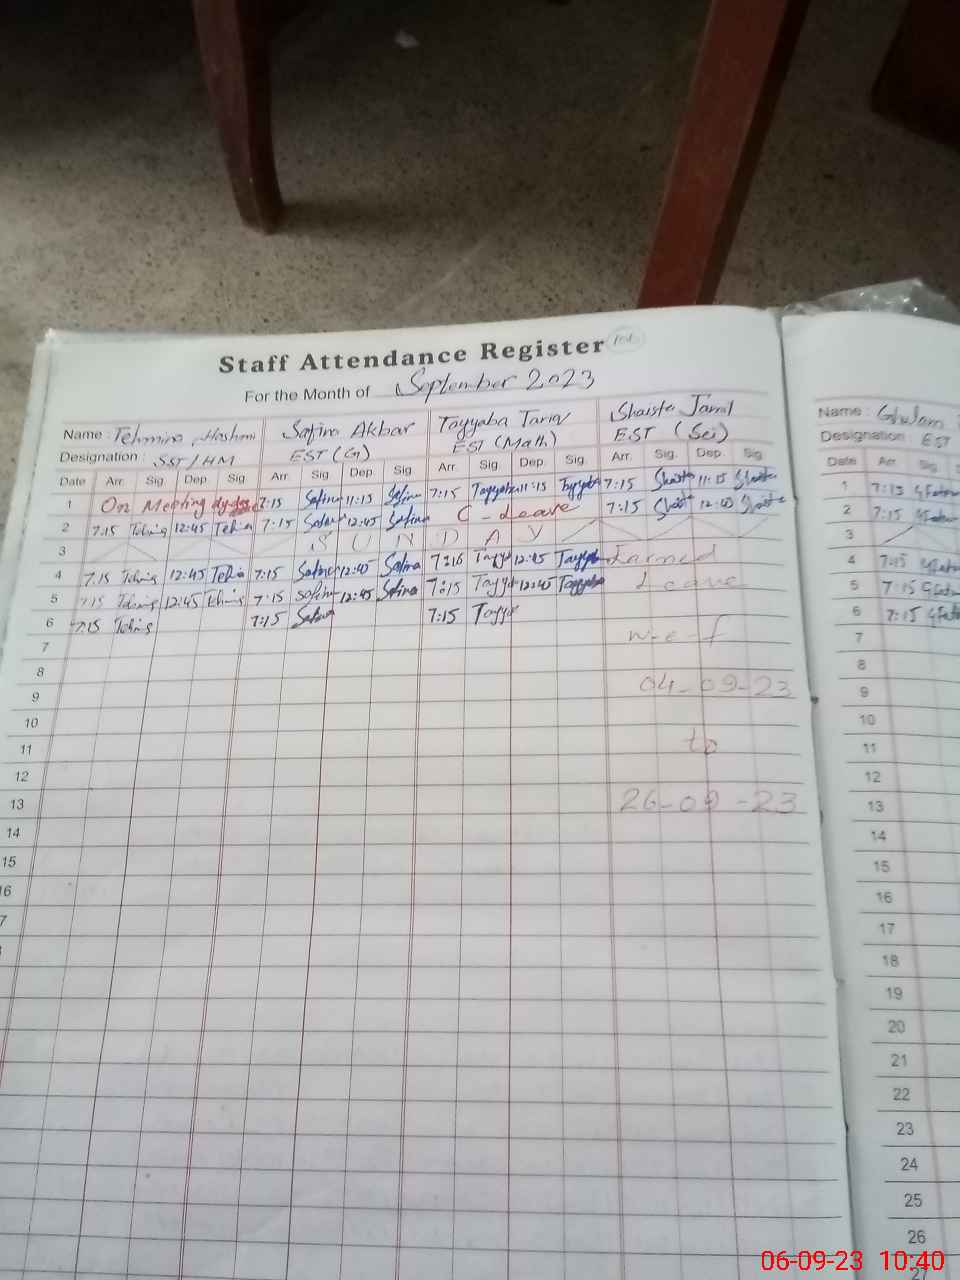 Staff Attendance Register
For the Month of September 2023
Name : Tehmina Hashmi Safina Akbar Tayyaba Tariq Shaista Jamil
Designation : SST/HM EST (G) EST (Math) EST (Sci)
Date Arr. Sig. Dep. Sig. Arr. Sig. Dep. Sig. Arr. Sig. Dep. Sig. Arr. Sig. Dep. Sig.
1 On Meeting 7:15 Safina 11:15 Safina 7:15 Tayyaba 11:15 Tayyaba 7:15 Shaista 11:15 Shaista
2 7:15 12:45 7:15 Safina 12:45 Safina C-Leave 7:15 Shaista 12:45 Shaista
3 SUNDAY
4 7:15 12:45 7:15 Safina 12:45 Safina 7:15 Tayya 12:45 Tayyaba Earned
5 7:15 12:45 7:15 Safina 12:45 Safina 7:15 Tayya 12:45 Tayyaba Leave
6 7:15 7:15 Safina 7:15 Tayya
7 w-e-f
8
9 04-09-23
10
11 to
12
13 26-09-23
14
15
16
7
Name : Ghulam
Designation : EST
Date Arr. Sig.
1 7:15
2 7:15
3
4 7:15
5 7:15
6 7:15
7
8
9
10
11
12
13
14
15
16
17
18
19
20
21
22
23
24
25
26
27
06-09-23 10:40